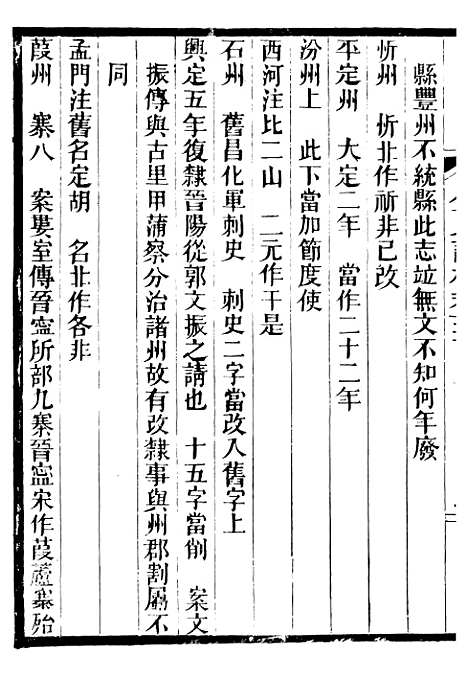 縣豐州不統縣此志竝無文不知何年廢
忻州　忻北作祈非已改
平定州　大定二年　當作二十二年
汾州上　此下當加節度使
西河注比二山　二元作干是
石州　舊昌化軍刺史　刺史二字當改入舊字上
興定五年復隸晉陽從郭文振之請也　十五字當削　案文
振傳與古里甲蒲察分治諸州故有改隸事與州郡割屬不
同
孟門注舊名定胡　名北作各非
葭州　寨八　案婁室傳晉寧所部九寨晉寧宋作葭蘆寨殆